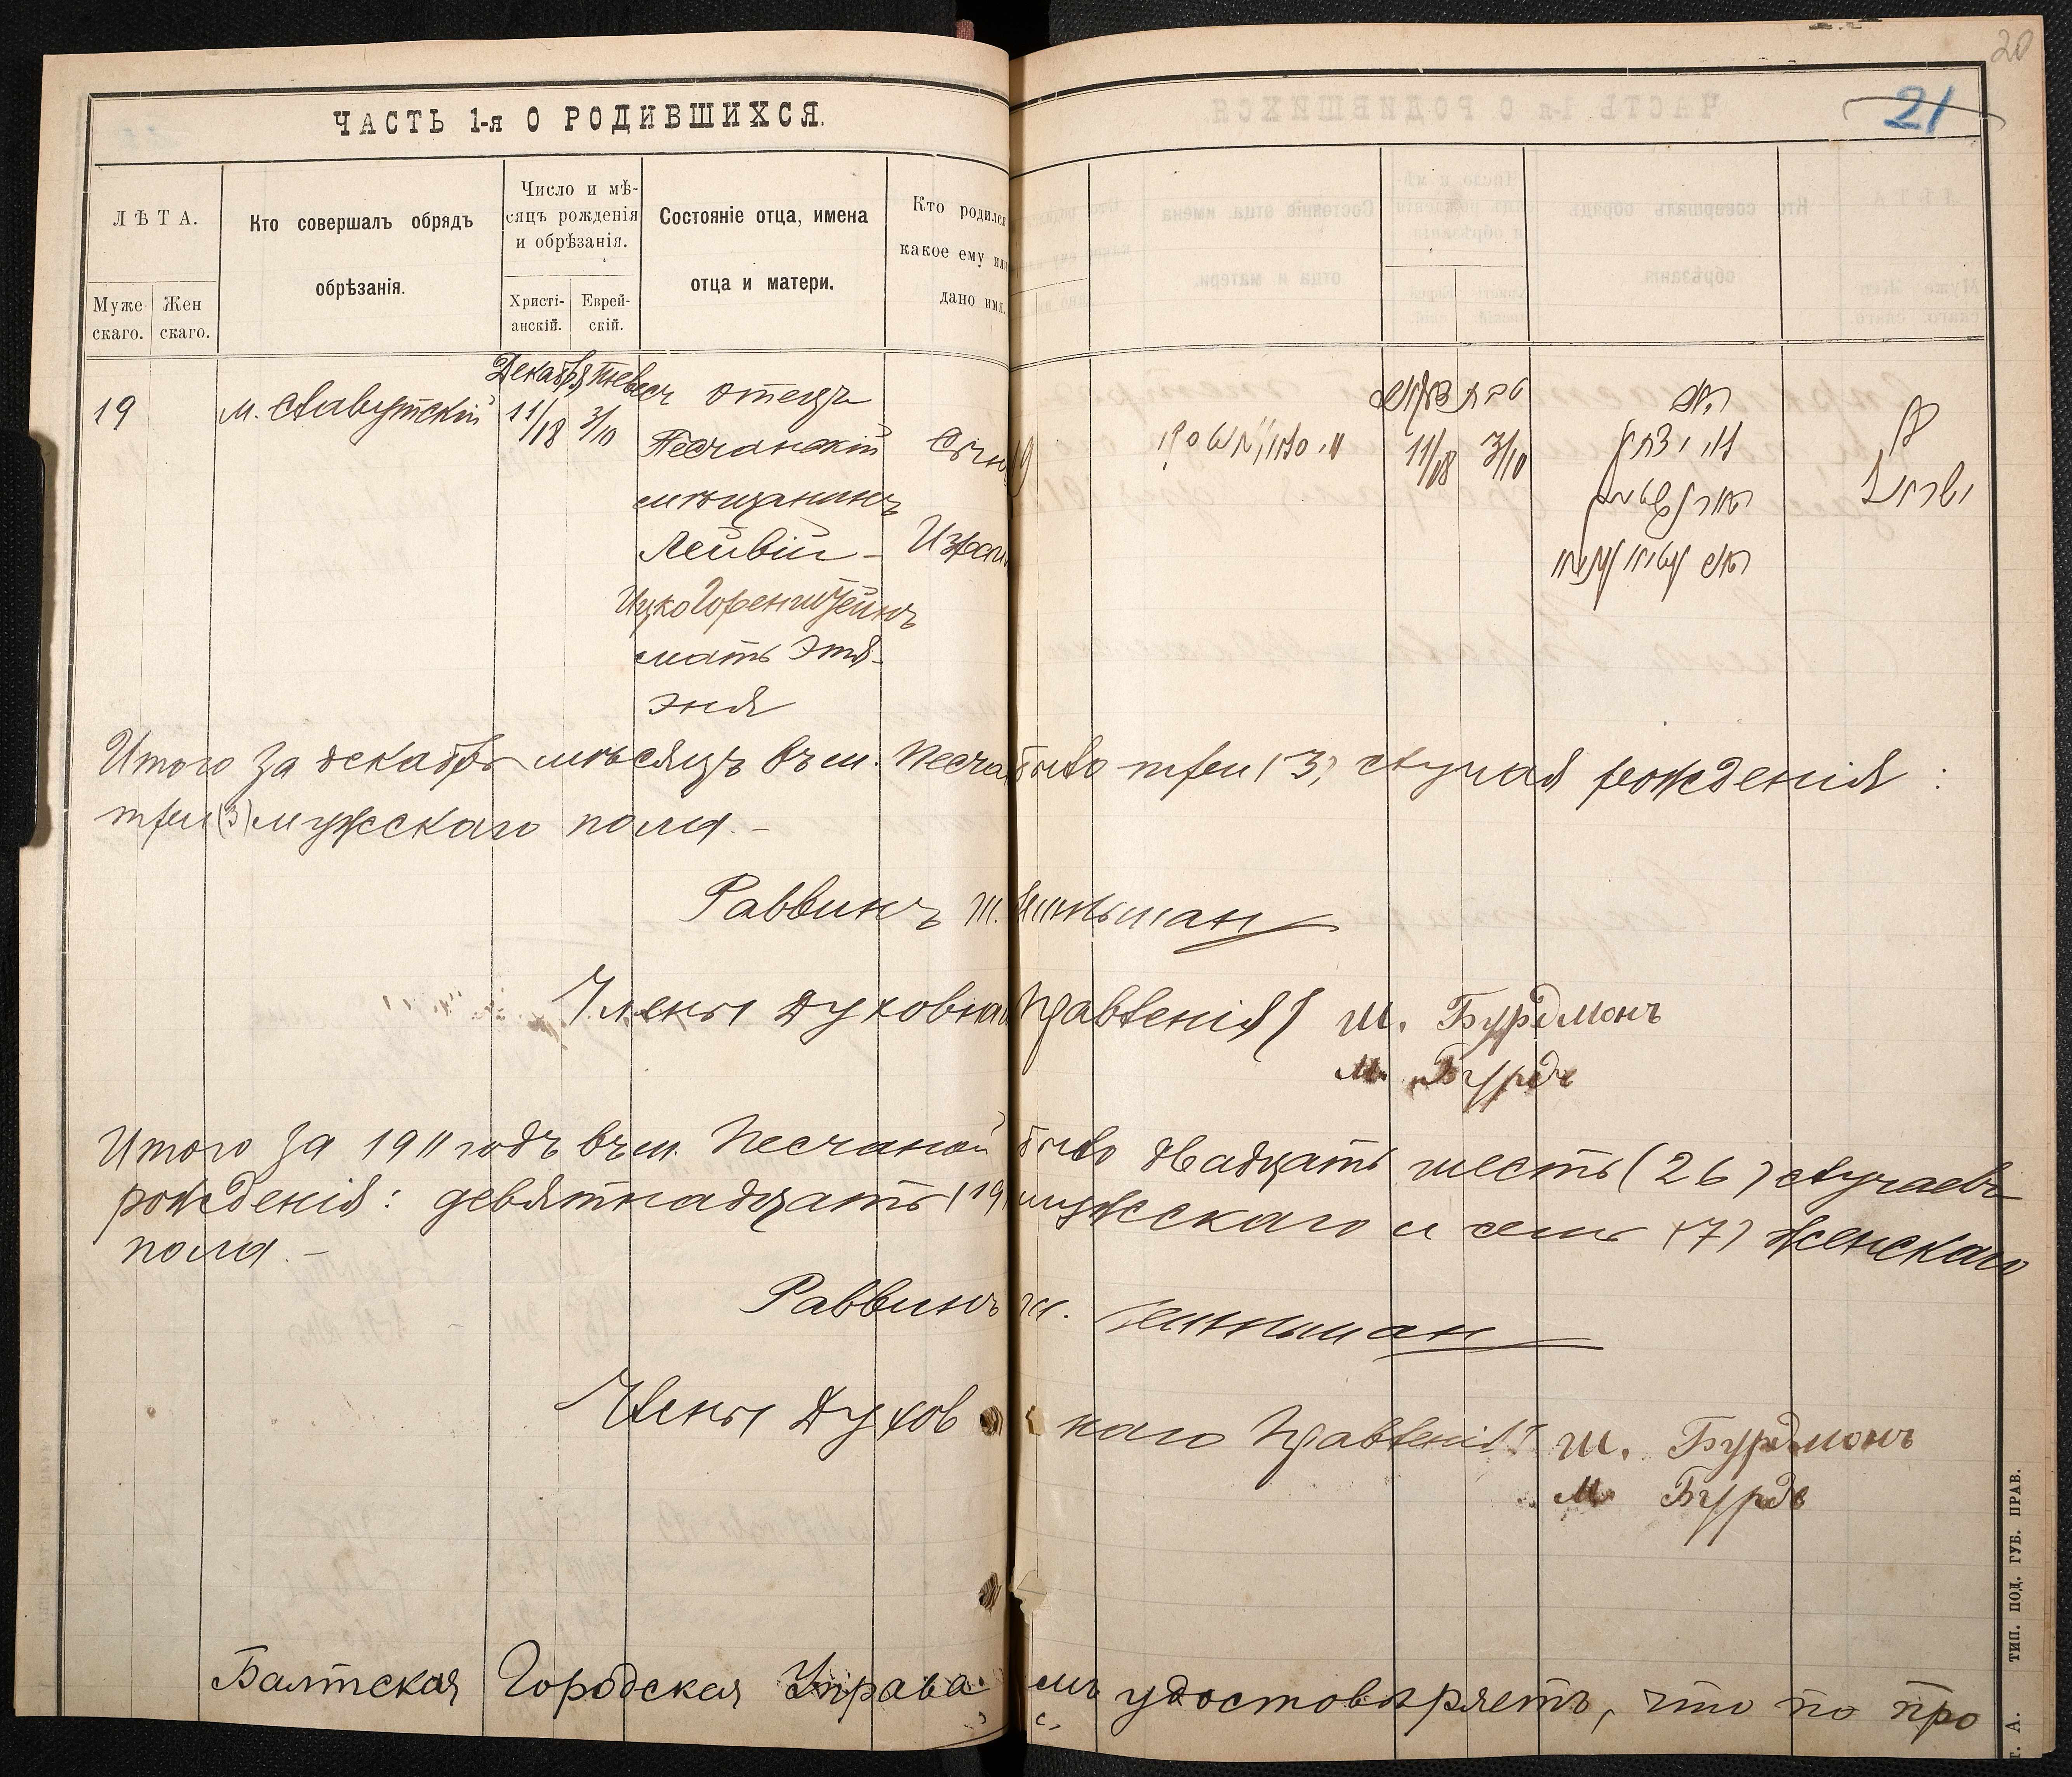 20
21
ЧАСТЬ 1-я О РОДИВШИХСЯ.
ЛѢТА.
Муже-
скаго.
Жен
скаго.
Кто совершалъ обрядъ
обрѣзанія.
Число и мѣ-
сяцъ рожденія
и обрѣзанія.
Христі-
анскій.
Еврей-
скій.
Состояніе отца, имена
отца и матери.
Кто родился
какое ему или
дано имя.
19
М. Славутскій
Декабрь Тевесъ
11/18 3/10
Отецъ
Песчанскій
мѣщанинъ
Лейвій-
Ицко Горенштейнъ
мать Этя-
Эня
Сынъ
Израиль
19
11/18 3/10
Итого за декабрь мѣсяцъ въ м. Песчаной было три (3) случая рожденія:
три (3) мужскаго пола.-
Раввинъ
Члены Духовнаго Правленія Ш. Бурдманъ
М. Бурдъ
Итого за 1911 годъ въ м. Песчаной было двадцать шесть (26) случаевъ
рожденія: девятнадцать (19) мужскаго и семь (7) женскаго
пола.-
Раввинъ
Члены Духовнаго Правленія Ш. Бурдманъ
М Бурдъ
Балтская Городская Управа симъ удостовѣряетъ, что по про
Т. А. ТИП. ПОД. ГУБ. ПРАВ.